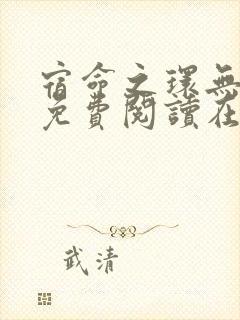 宿命之環無
免費閱讀在
武清